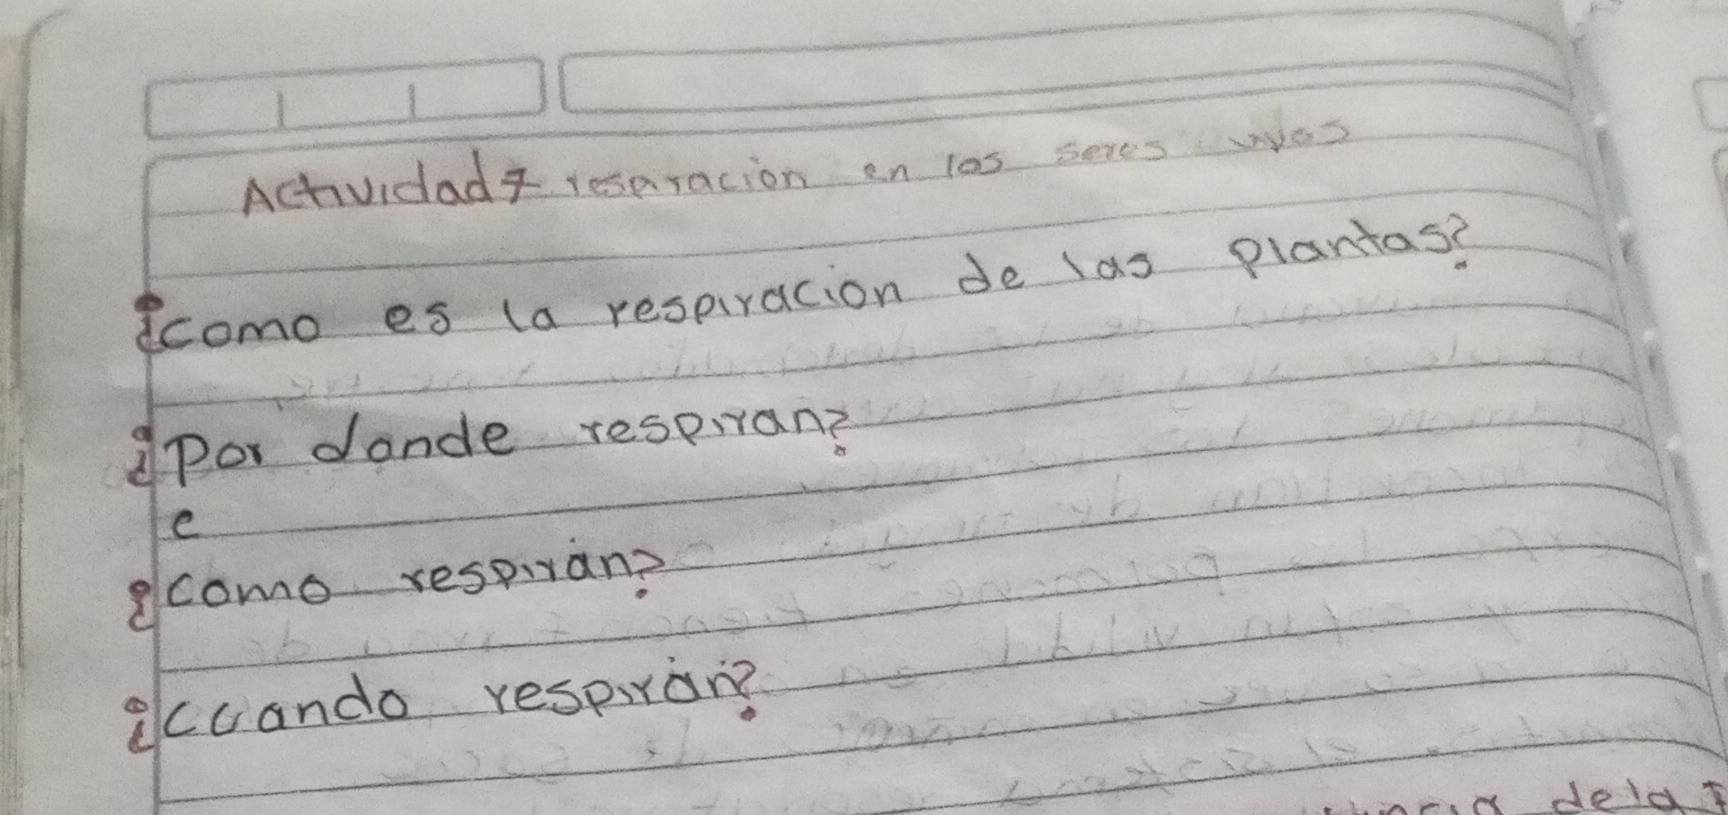 Actividad 7 resparación en los seres vivos
¿como es la respiracion de las plantas?
¿Por donde respiran?
e
¿como respiran?
¿cuando respiran?
dela